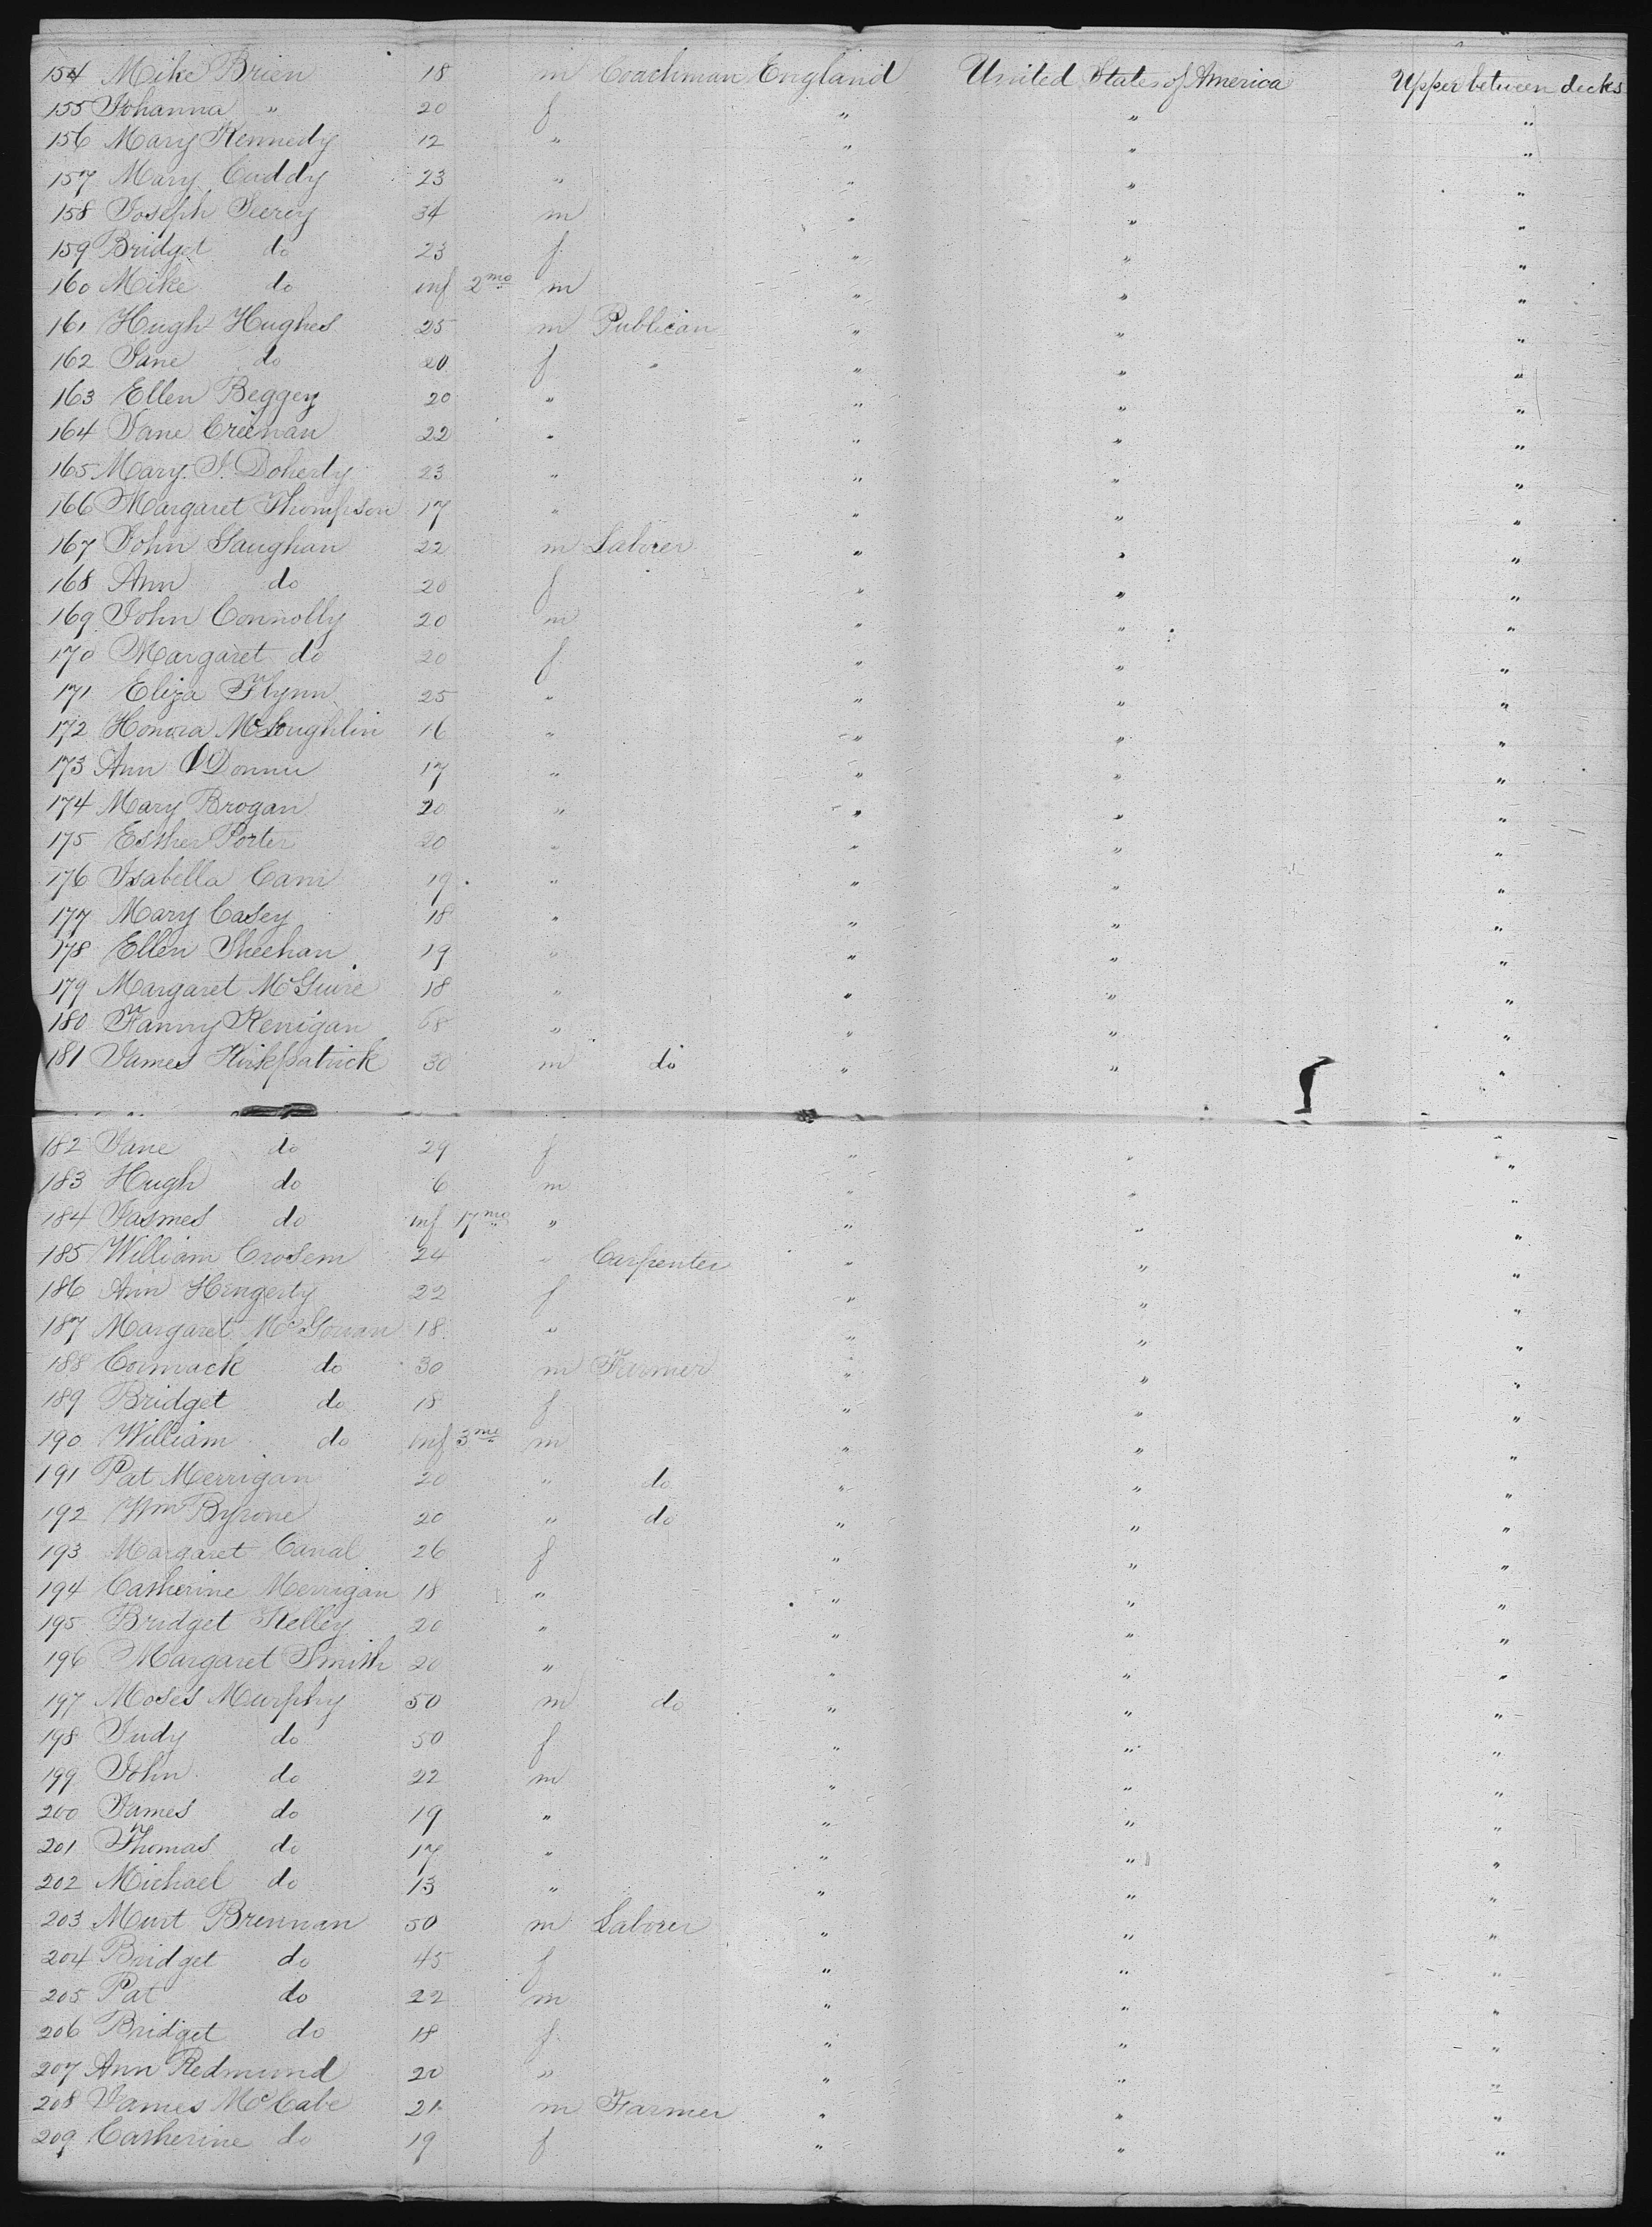 154 Mike Brien 18 m Coachman England United States of America Upper between decks
155 Johanna " 20 f " " "
156 Mary Kennedy 12 " " " "
157 Mary Cuddy 23 " " " "
158 Joseph Seery 34 m " " "
159 Bridget do 23 f " " "
160 Mike do inf 2mo m " " "
161 Hugh Hughes 25 m Publican " " "
162 Jane do 20 f " " " "
163 Ellen Beggey 20 " " " "
164 Jane Creenan 22 " " " "
165 Mary J. Doherty 23 " " " "
166 Margaret Thompson 17 " " " "
167 John Gaughan 22 m Laborer " " "
168 Ann do 20 f " " "
169 John Connolly 20 m " " "
170 Margaret do 20 f " " "
171 Eliza Flynn 25 " " " "
172 Honora McLoughlin 16 " " " "
173 Ann 17 " " " "
174 Mary Brogan 20 " " " "
175 Esther Porter 20 " " " "
176 Isabella 19 " " " "
177 Mary Casey 18 " " " "
178 Ellen Sheehan 19 " " " "
179 Margaret McGuire 18 " " " "
180 Fanny Kerrigan 68 " " " "
181 James Kirkpatrick 30 m do " " "
182 Jane do 29 f " " "
183 Hugh do 6 m " " "
184 Jasmes do inf 17mo " " " "
185 William Crosem 24 " Carpenter " " "
186 Ann Hengerty 22 f " " "
187 Margaret McGowan 18 " " " "
188 Cormack do 30 m Farmer " " "
189 Bridget do 18 f " " "
190 William do inf 3mo m " " "
191 Pat Merrigan 20 " do " " "
192 Wm Byrone 20 " do " " "
193 Margaret Canal 26 f " " "
194 Catherine Merrigan 18 " " " "
195 Bridget Kelley 20 " " " "
196 Margaret Smith 20 " " " "
197 Moses Murphy 50 m do " " "
198 Judy do 50 f " " "
199 John do 22 m " " "
200 James do 19 " " " "
201 Thomas do 17 " " " "
202 Michael do 13 " " " "
203 Murt Brennan 50 m Laborer " " "
204 Bridget do 45 f " " "
205 Pat do 22 m " " "
206 Bridget do 18 f " " "
207 Ann Redmund 20 " " " "
208 James McCabe 21 m Farmer " " "
209 Catherine do 19 f " " "